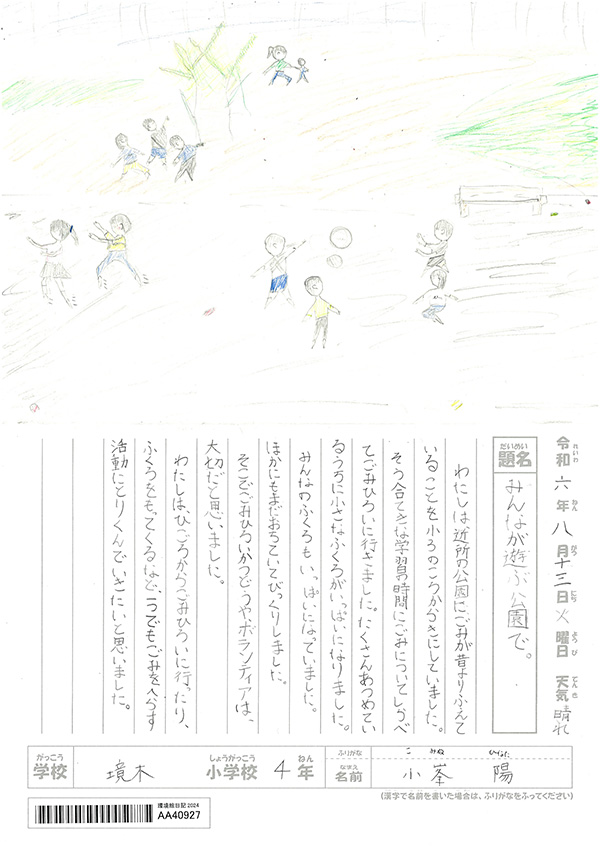 令和六年八月十三日火曜日 天気 晴れ
れいわ ねん がつ にち ようび てんき
だいめい
題名 みんなが遊ぶ公園で。
わたしは近所の公園にごみが昔よりふえて
いることを小さいころから気にしていました。
そう合てきな学習の時間にごみについてしらべ
てごみひろいに行きました。たくさんあつめてい
るうちに小さなふくろがいっぱいになりました。
みんなのふくろもいっぱいになっていました。
ほかにもまだおちていてびっくりしました。
そこでごみひろいかつどうや、ボランティアは、
大切だと思いました。
わたしは、ひごろからごみひろいに行ったり、
ふくろをもってくるなど、1つでもごみをへらす
活動にとりくんでいきたいと思いました。
がっこう しょうがっこう ねん ふりがな こ みね ひなた
学校 境木 小学校 4年 なまえ 名前 小峯 陽
(漢字で名前を書いた場合は、ふりがなをふってください)
環境絵日記 2024
AA40927